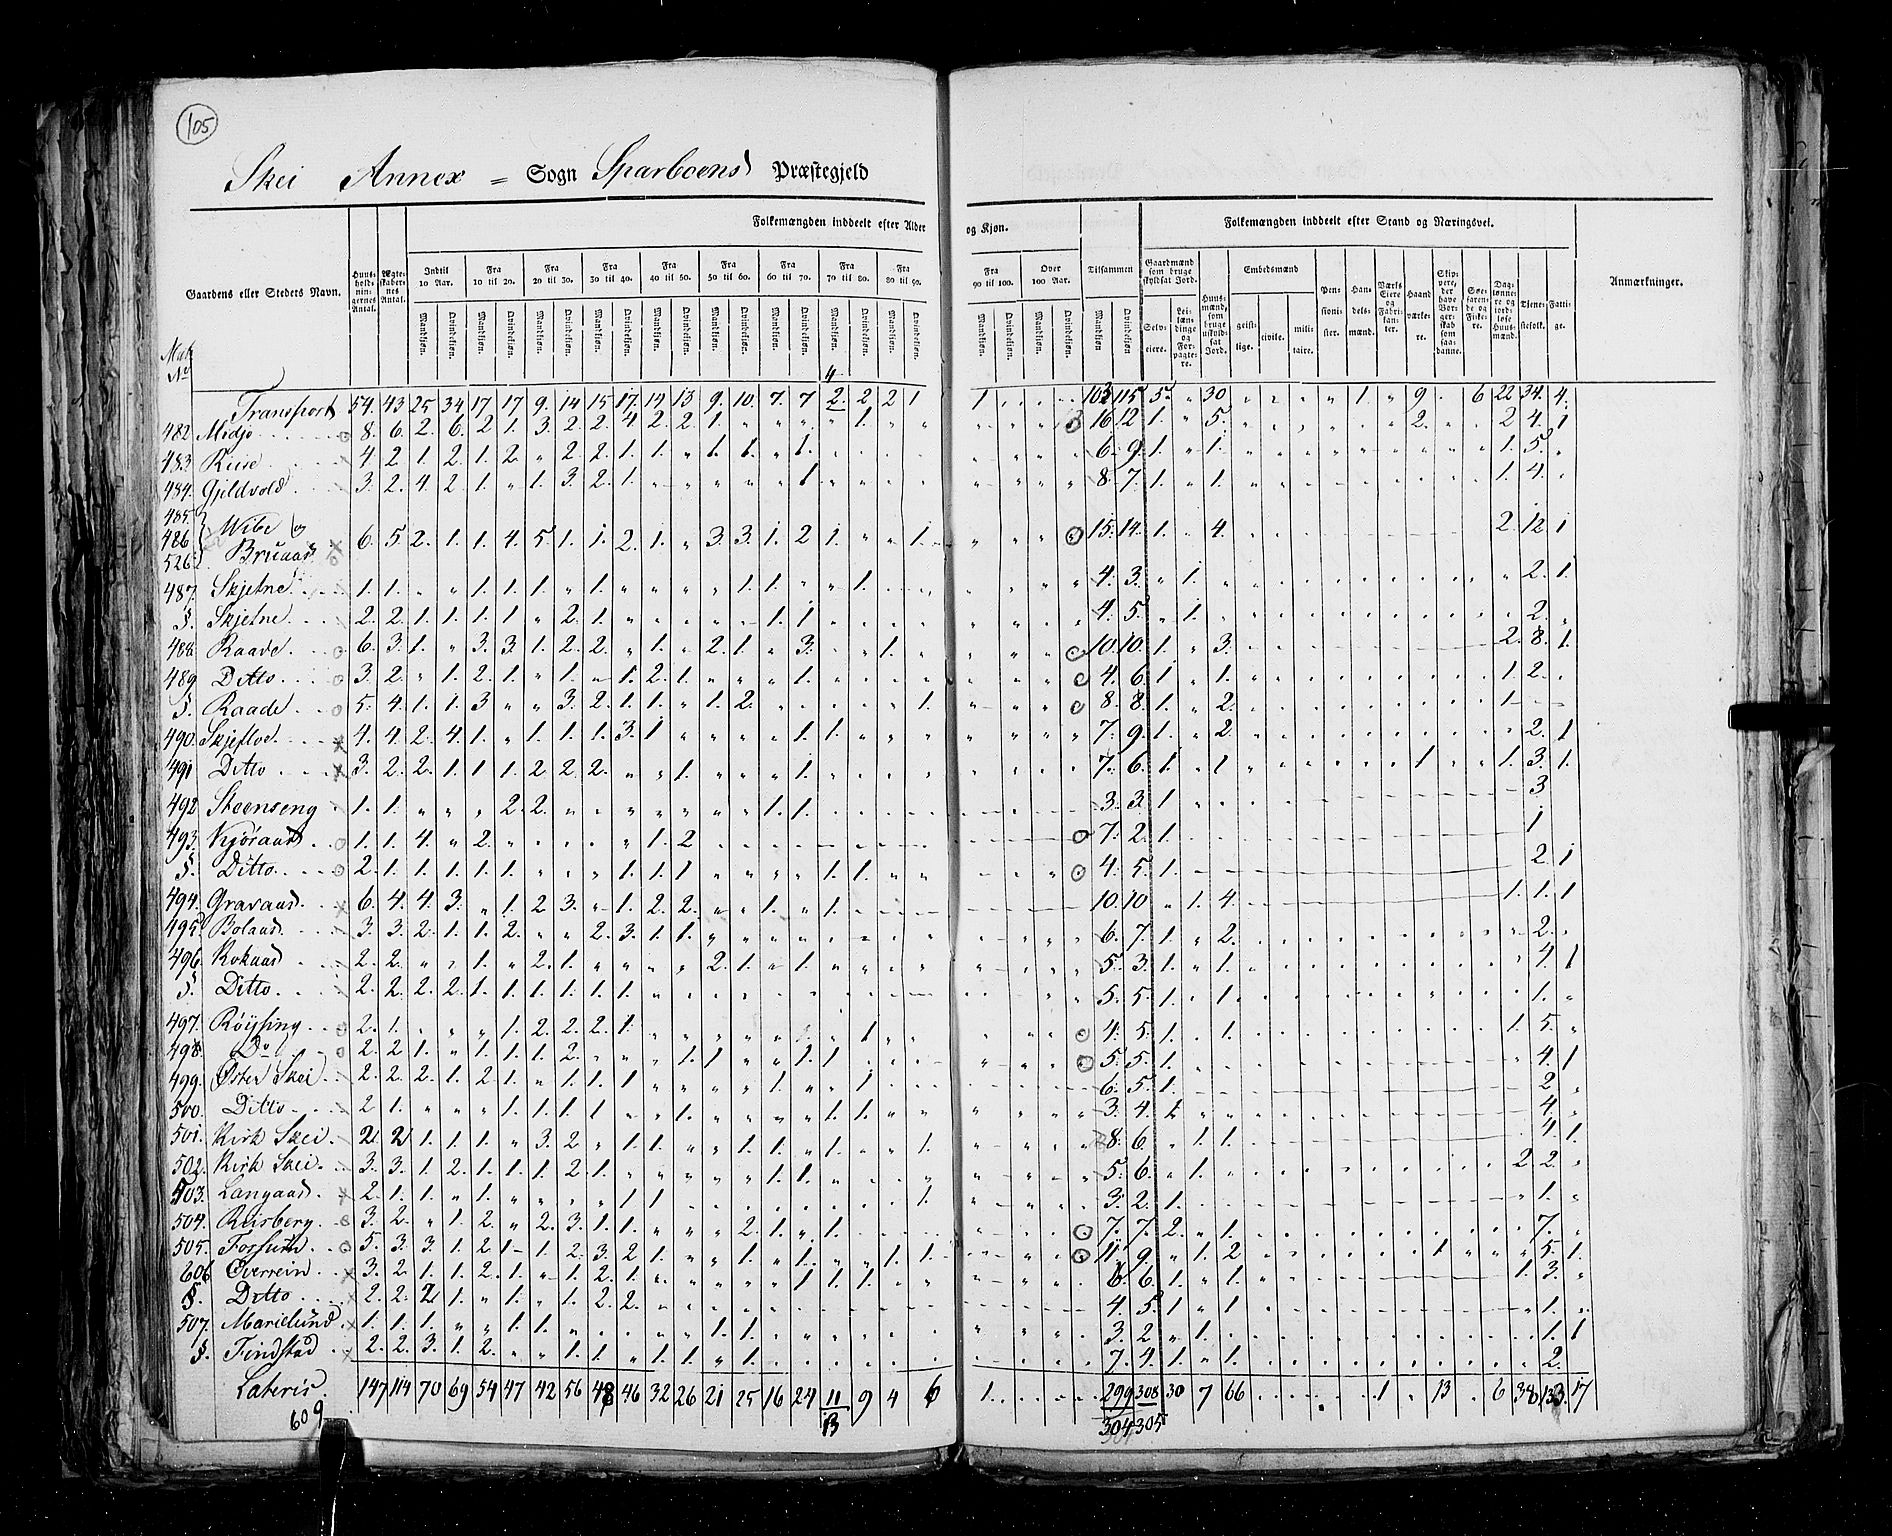 105
Skei Annex = Sogn Sparboens Præstegjeld
Folkemængden inddeelt efter Alder og Kjøn.
Folkemængden inddeelt efter Stand og Næringsvei.
Gaardens eller Steders Navn.
Huusholdningernes Antal.
Ægteskabernes Antal.
Indtil 10 Aar.
Fra 10 til 20.
Fra 20 til 30.
Fra 30 til 40.
Fra 40 til 50.
Fra 50 til 60.
Fra 60 til 70.
Fra 70 til 80.
Fra 80 til 90.
Fra 90 til 100.
Over 100 Aar.
Tilsammen
Mandkjøn. Qvindekjøn.
Gaardmænd som bruge skyldsat Jord.
Selveiere.
Leilændinge og Forpagtere.
Huusmænd, som bruge uskyldsat Jord.
Embedsmænd
geistlige. civile. militaire.
Pensionister.
Handelsmænd.
Værks Eiere og Fabrikanter.
Haandværkere.
Skippere, der have Borgerskab som saadanne.
Søefarende og Fiskere.
Daglønnere og jordløse Huusmænd.
Tjenestefolk.
Fattige.
Anmærkninger.
Transport 54. 43 25 34 17 17 9. 14 15 17. 14 13 9. 10. 7. 7 2. 2 2 1 1 103 115 5. 30 1 9 6 22 34. 4.
482 Midjo 8. 6. 2. 6. 2 1. 3. 2 2. 4 2. 2. 1. 1. 16 12 1. 5. 2. 2 4. 1
483 Riise 4 2. 1. 2. 1. 2. 2. 2. 1. 1. 1. 1. 1. 6. 9. 1. 1. 1. 5.
484. Gjeldvold 3. 2. 4. 2. 1. 1. 3. 2. 1. 1. 8. 7. 1. 1. 1. 4.
485.
486. Wibe og
526. Bruaas 6. 5. 2. 1. 1. 4. 5. 1. 1. 2. 1. 3. 3. 1. 2 1. 1. 15. 14. 1. 4. 2. 12. 1
487. Skjetne 1. 1. 1. 1. 1. 1. 1. 1. 1. 4. 3. 1. 2. 1.
§. Skjetne 2. 2. 1. 1. 1. 1 2. 1. 1. 1. 4. 5. 1. 2.
488. Raade 6. 3. 1. 3. 3. 1. 2. 2. 1. 2. 1. 3. 1. 10. 10. 1. 3. 2. 8. 1.
489 Ditto 3. 2. 1. 2. 1. 1. 1. 2. 1. 1. 4. 6. 1 1. 1. 2.
§. Raade 5. 4. 1. 1. 3 3. 2. 1. 1. 1. 2. 1. 8. 8. 1. 2. 1.
490. Skjeflod 4. 4. 2. 4. 1. 1. 1. 1. 3. 1 1. 1. 7. 9. 1. 2. 2. 1
491 Ditto 3. 2. 2. 1. 1. 1. 2. 2. 2. 1. 1. 7. 6. 1. 1 1 1. 3. 1.
492 Steenseng 1. 1. 2. 2. 1. 1. 3. 3. 1 3
493. Kjøraas 1. 1. 4. 2. 1. 2 7. 2. 1. 1
§. Ditto 2. 1. 1. 1. 1. 1. 1. 1. 1 1. 1. 4. 5. 1. 2. 1
494. Gravaas 6. 4. 4. 3. 1. 2 3. 1. 2. 2. 1. 1. 10. 10 1. 4. 1. 1. 1
495 Bolaas 3. 3. 2. 1. 1. 2. 2. 3. 1. 1. 6. 7. 1. 2. 2.
496. Rokaas 2. 2. 1. 2. 1. 2. 1. 1. 5. 3. 1. 1. 4. 1
§. Ditto 2. 2. 2. 2. 1. 1. 1. 1. 1. 1. 5. 5. 1. 1. 1.
497. Røysing 2. 1. 1. 2. 2. 2. 1. 1 4. 5. 1. 1. 1. 5.
498. Do 2. 2 1. 1. 1. 1. 2. 1. 1 1. 1 5. 5. 1. 4. 1
499. Øster Skei 2. 2. 2. 1. 2. 1. 1. 1. 1 1. 1 6. 5. 1. 2
500. Ditto 2 1. 1. 1. 1. 1 1. 1. 1. 3. 4. 1. 4.
501. Kirk Skei 2. 2 1. 1. 1. 3. 2. 1. 1. 1. 1. 1. 8. 6. 1. 1. 4. 1.
502. Kirk Skei 3. 3. 1. 2. 1. 1. 1. 2. 1. 1. 1. 5. 6. 1. 2 2.
503. Langaas 2. 1. 1. 1. 1. 1. 1. 3. 2. 1. 1.
504. Riisberg 3. 2. 1. 2. 2. 3. 1. 1. 2. 1. 1. 7. 7. 2. 1. 7.
505. Forsum 5. 3. 3. 1. 2. 1 1. 2. 3. 2 1. 1. 1. 1. 1. 11. 9. 1. 2 1 5. 1.
606 Øverrein 3. 2. 1. 1. 2. 1. 1. 2. 1. 1. 1. 1. 6. 6. 1. 1. 1. 3.
§. Ditto 2. 2. 2 1. 1. 1. 2. 2. 4. 5. 1 1. 1.
507. Marielund 1. 1. 1. 1. 1. 1. 1. 3. 2 1. 1. 1
§. Findstad 2. 2. 3. 1. 2. 1. 1. 1. 1. 1. 7. 4. 1. 1. 2.
Lateris. 147 114 70 69 54 47 42 56 48 46 32 26 21 25 16 24 11 9 4 6 1. 299 308 30 7 66 1 13 6 38 133. 17
609 13 304 305